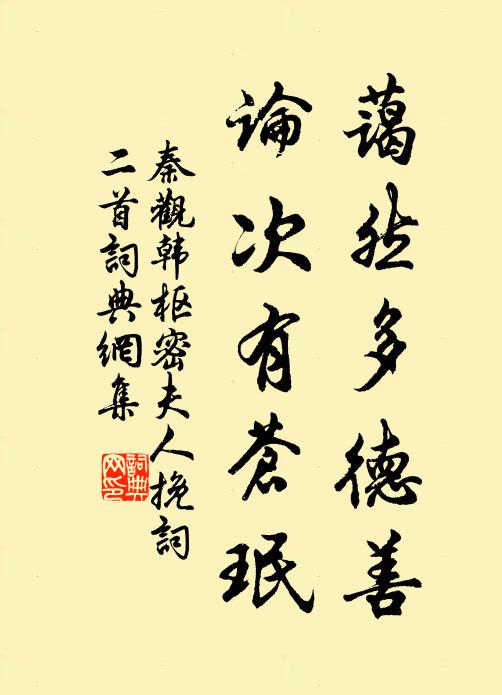 藹然多德善
論次有蒼珉
秦觀韩枢密夫人挽詞
二首詞典網集
詞典网印